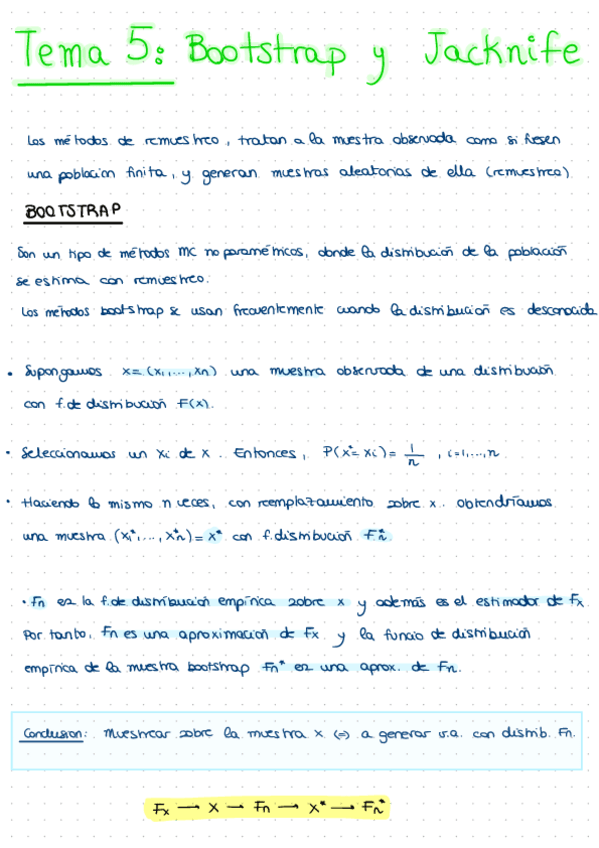 Tema 5: Bootstrap y Jacknife
Los métodos de remuestreo, tratan a la muestra observada como si fuesen
una poblacion finita, y generan muestras aleatorias de ella (remuestreo)
BOOTSTRAP
Son un tipo de métodos MC no paramétricos, donde la distribución de la población
se estima con remuestreo.
Los métodos bootstrap se usan frecuentemente cuando la distribución es desconocida
• Supongamos x = (x₁,...,xn) una muestra observada de una distribución
con f. de distribución F(x).
• Seleccionamos un xi de x. Entonces, P(x* = xi) = 1/n, i=1,...,n
• Haciendo lo mismo n veces, con reemplazamiento sobre x. obtendríamos
una muestra (x₁*,...,xn*) = x* con f. distribución Fn*
• Fn es la f. de distribución empírica sobre x y además es el estimador de Fx
Por tanto, Fn es una aproximación de Fx y la funcio de distribución
empírica de la muestra bootstrap Fn* es una aprox. de Fn.
Conclusion: Muestrear sobre la muestra x (=) a generar v.a. con distrib. Fn.
Fx → X → Fn → X* → Fn*